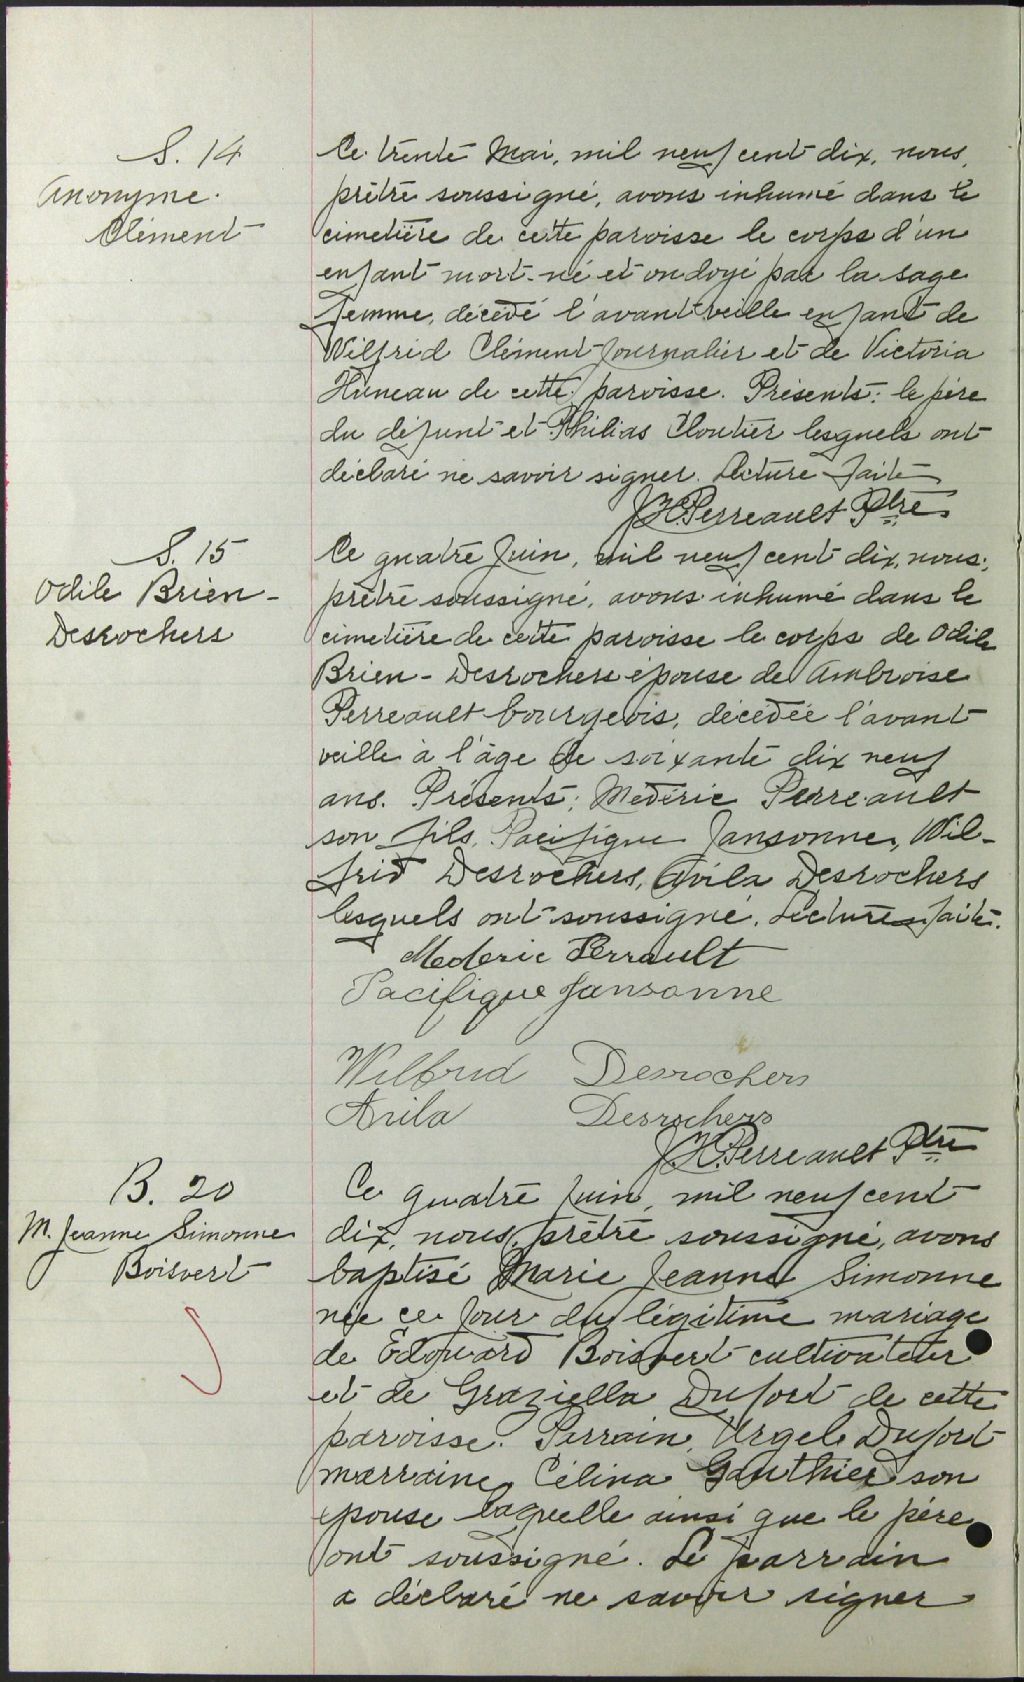 S. 14
Anonyme.
Clément
Ce trente Mai, mil neuf cent dix, nous,
prêtre soussigné, avons inhumé dans le
cimetière de cette paroisse le corps d'un
enfant mort-né et ondoyé par la sage
femme, décédé l'avant veille enfant de
Wilfrid Clément journalier et de Victoria
Huneau de cette paroisse. Présents: le père
du défunt et Philias Cloutier lesquels ont
déclaré ne savoir signer. Lecture faite
J.H. Perreault Ptre
S. 15
Odile Brien-
Desrochers
Ce quatre Juin, mil neuf cent dix, nous,
prêtre soussigné, avons inhumé dans le
cimetière de cette paroisse le corps de Odile
Brien-Desrochers épouse de Ambroise
Perreault bourgeois, décédée l'avant
veille à l'âge de soixante dix neuf
ans. Présents: Médéric Perreault
son fils, Pacifique Jansonne, Wil-
frid Desrochers, Avila Desrochers
lesquels ont soussigné. Lecture faite.
Mederic Perrault
Pacifique Jansonne
Wilfrid Desrochers
Avila Desrochers
J.H. Perreault Ptre
B. 20
M. Jeanne Simonne
Boisvert
Ce quatre Juin, mil neuf cent
dix, nous, prêtre soussigné, avons
baptisé Marie Jeanne Simonne
née ce jour du légitime mariage
de Edouard Boisvert cultivateur
et de Graziella Dufort de cette
paroisse. Parrain, Urgel Dufort
marraine, Célina Gauthier son
épouse laquelle ainsi que le père
ont soussigné. Le parrain
a déclaré ne savoir signer